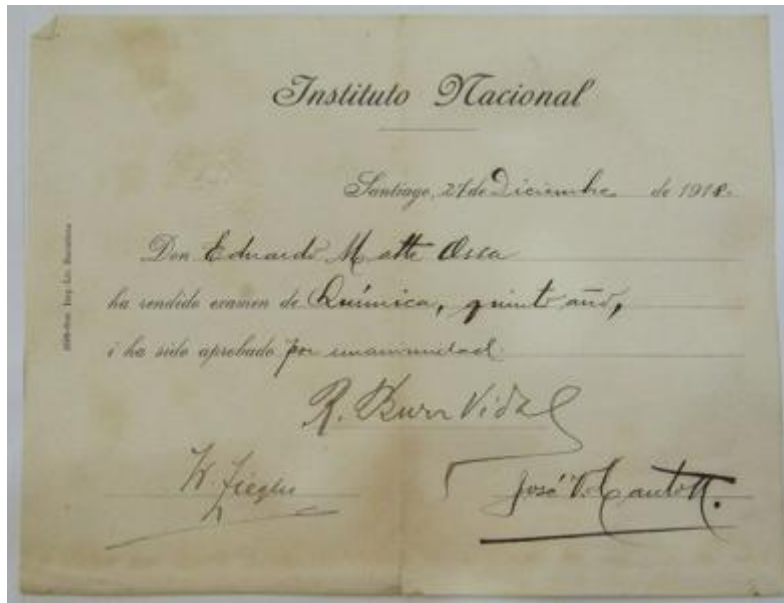 Instituto Nacional
Santiago, 27 de Diciembre de 1918
Don Eduardo Matte Ossa
ha rendido examen de Química, quinto año,
i ha sido aprobado por unanimidad
R. Burr Vidal
W. Ziegler
José V.
Imp. Lit. Barcelona